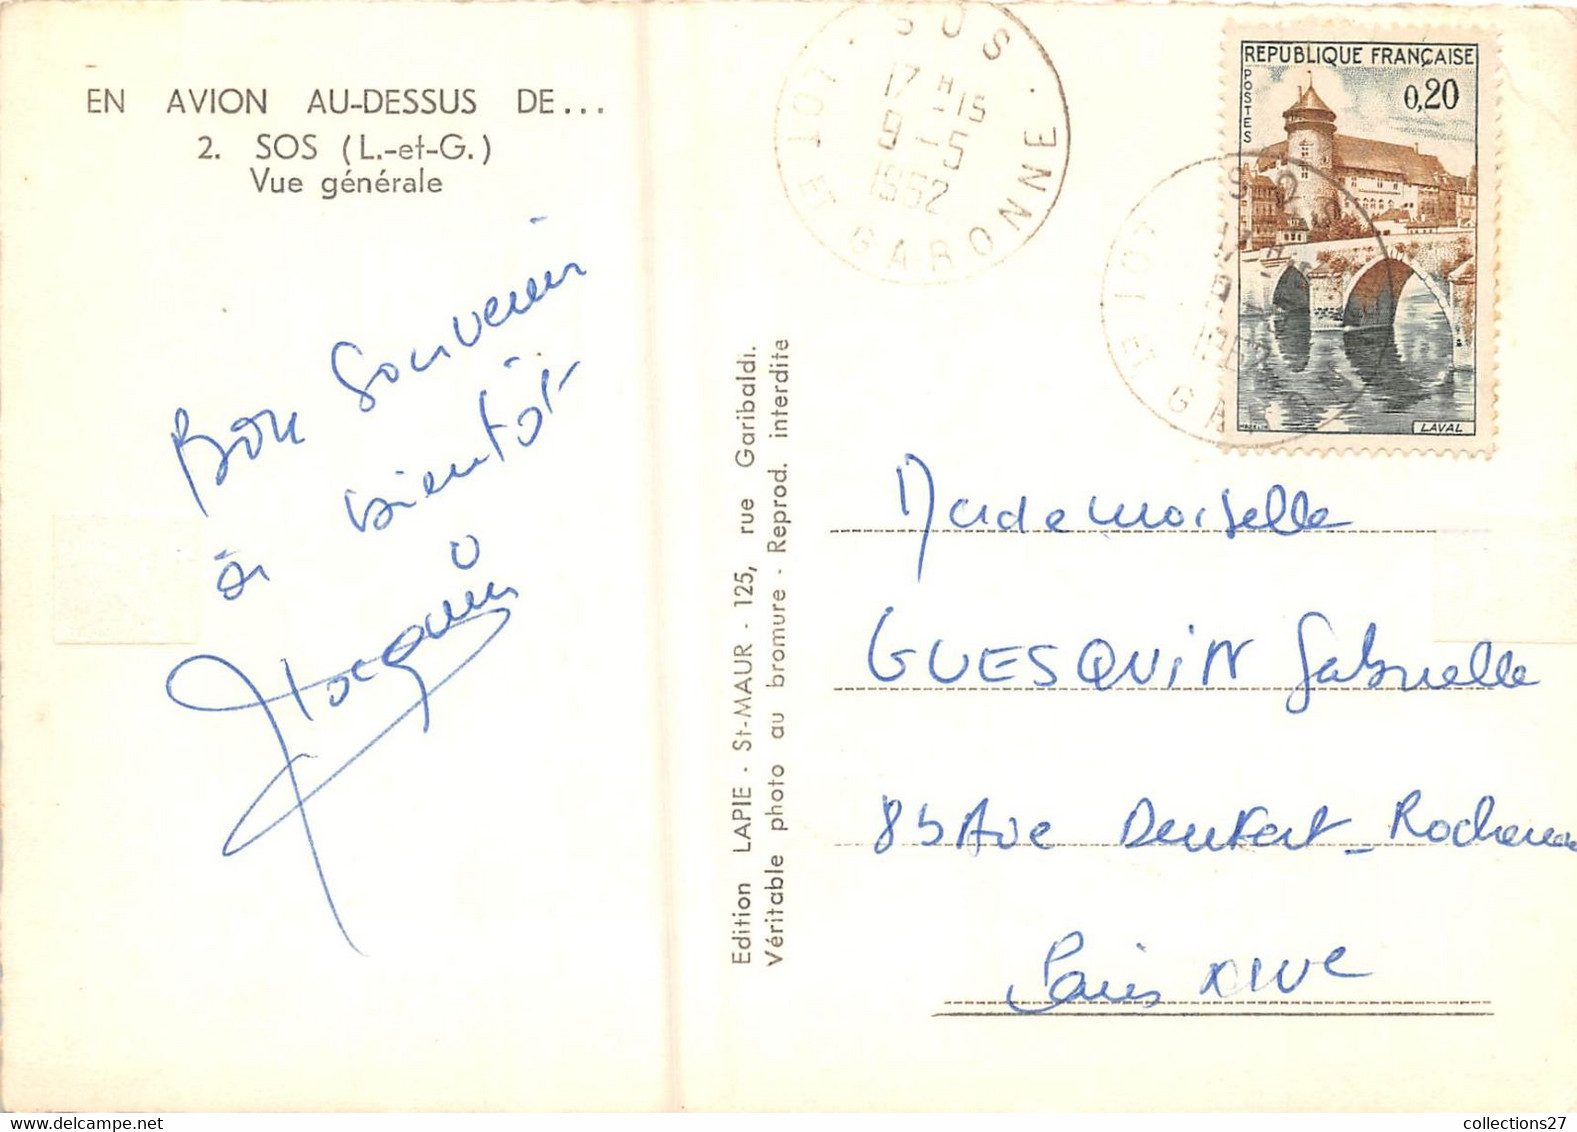 EN AVION AU-DESSUS DE...
2. SOS (L.-et-G.)
Vue générale
Bon souvenir
à bientôt
Edition LAPIE - St-MAUR - 125, rue Garibaldi.
Véritable photo au bromure - Reprod. interdite
SOS
17 H 15
9 - 5
1962
LOT ET GARONNE
REPUBLIQUE FRANÇAISE
POSTES
0,20
LAVAL
LOT ET GARO
Mademoiselle
GUESQUIN Gabrielle
85 Ave Denfert-Rochereau
Paris XIVe
collections27